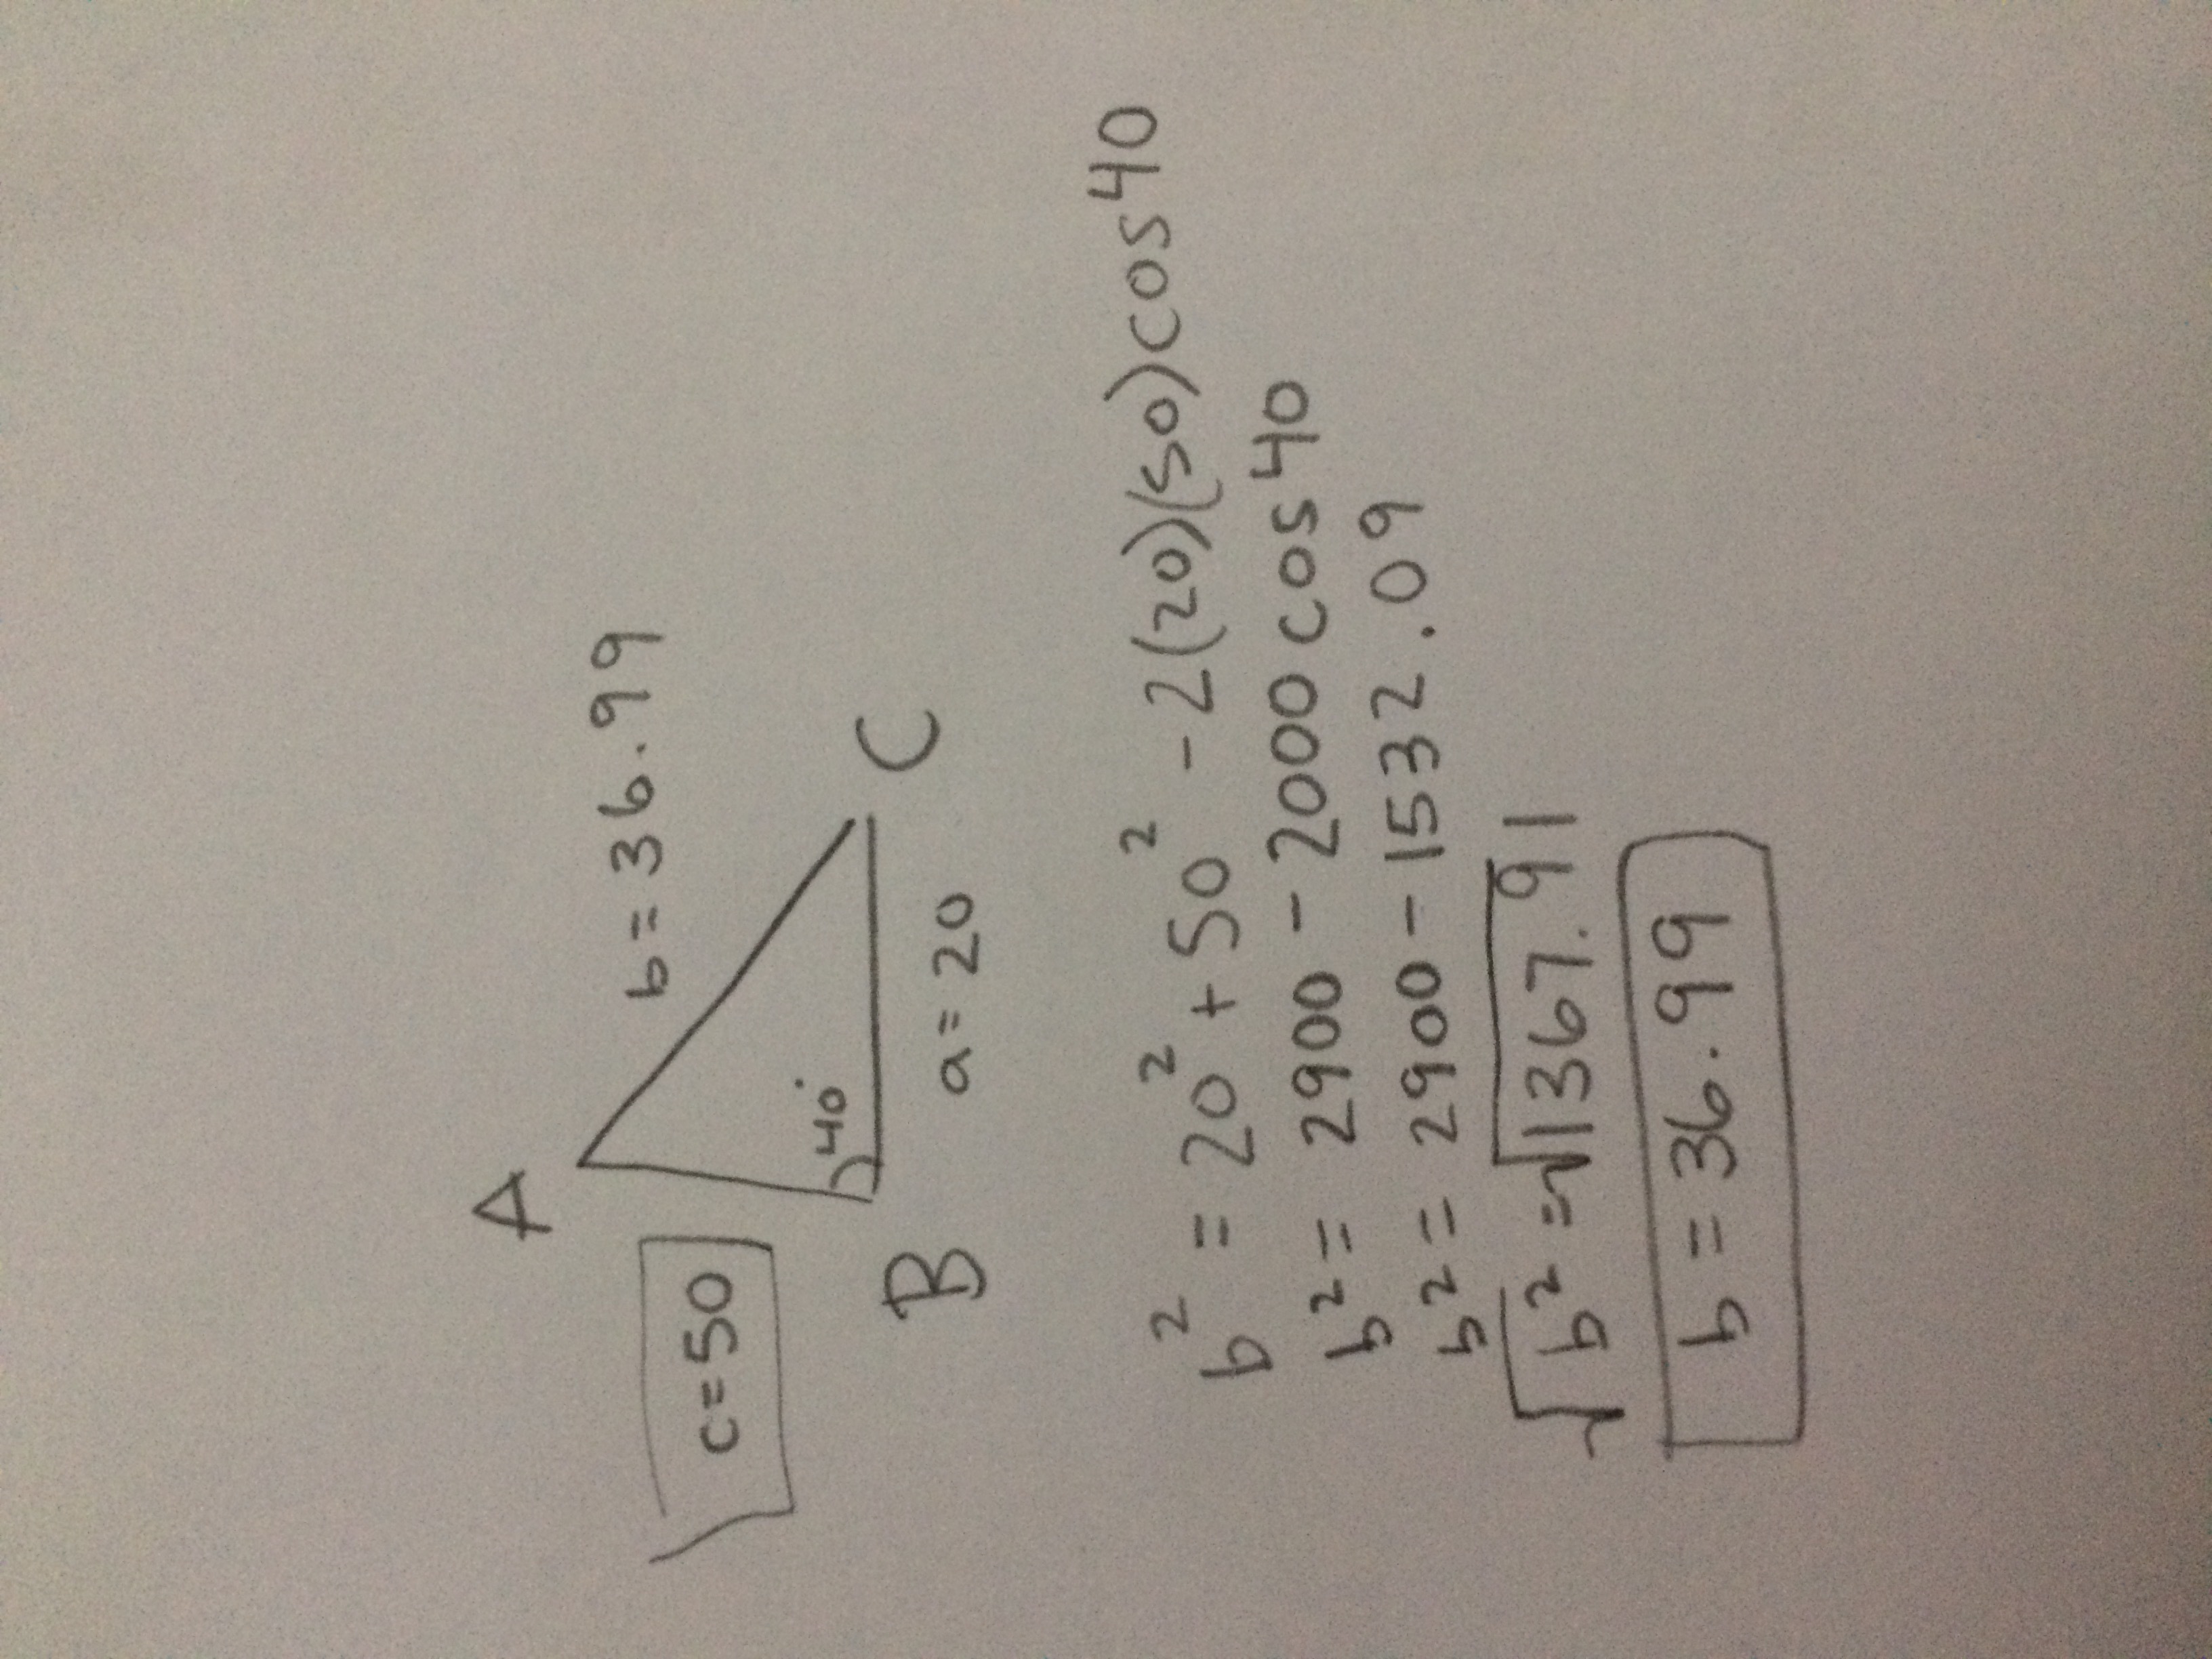 A
b = 36.99
c = 50
40°
B
C
a = 20
b² = 20² + 50² - 2(20)(50)cos40
b² = 2900 - 2000 cos40
b² = 2900 - 1532.09
√b² = √1367.91
b = 36.99